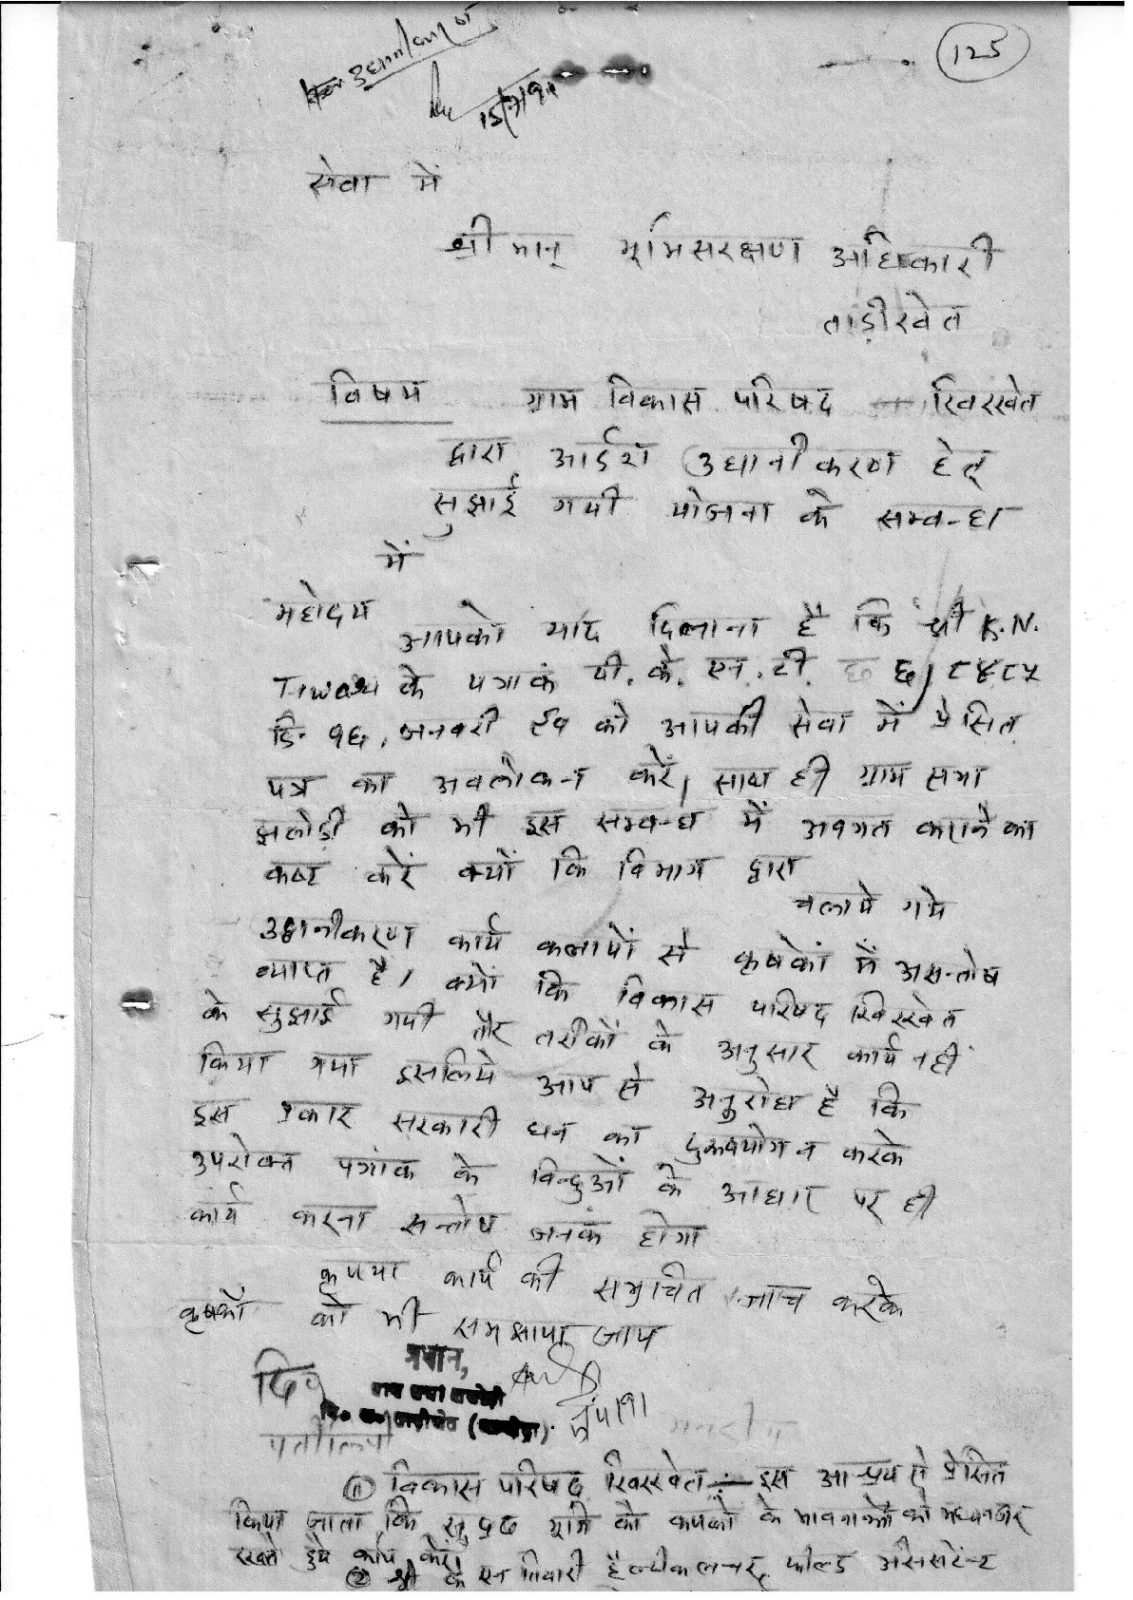 125
15/7/91
सेवा में
श्रीमान् भूमिसरक्षण अधिकारी
ताड़ीखेत
विषय ग्राम विकास परिषद — खिरखेत
द्वारा आर्दश उधानीकरण हेतू
सुझाई गयी योजना के सम्बन्ध
में
महोदय
आपको याद दिलाना है कि श्री K.N.
Tiwari के पत्राकं पी. के. एन. टी.
दि. १६, जनवरी को आपकी सेवा में प्रेसित
पत्र का अवलोकन करें, साथ ही ग्राम सभा
झलोड़ी को भी इस सम्बन्ध में अवगत कराने का
कष्ट करें क्यों कि विभाग द्वारा
चलाये गये
उद्यानीकरण कार्य कलापों से कृषकों में असन्तोष
व्याप्त है, क्यों कि विकास परिषद खिरखेत
के सुझाई गयी तौर तरीकों के अनुसार कार्य नहीं
किया गया इसलिये आप से अनुरोध है कि
इस प्रकार सरकारी धन का दुरूपयोग न करके
उपरोक्त पत्रांक के विन्दुओं के आधार पर ही
कार्य करना सन्तोष जनक होगा
कृपया कार्य की समुचित जाच करके
कृषकों को भी समझाया जाय
प्रधान,
दि०
प्रतीलिपी
(1) विकास परिषद खिरखेत :— इस आश्रय से प्रेसित
किया जाता कि भूमि को कृषकों के भावनाओं को मध्यनजर
रखते हुये कार्य करें।
(2) श्री के एन तिवारी फील्ड असिसटेन्ट